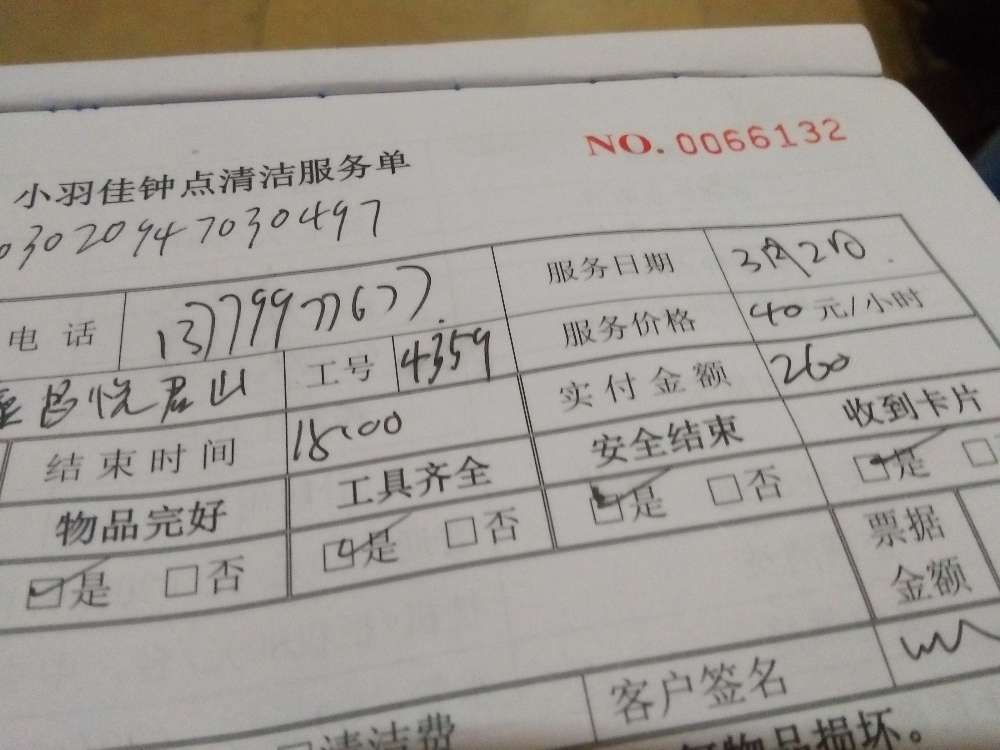 NO. 0066132
小羽佳钟点清洁服务单
0302094703049​7
电话 13779977677. 服务日期 3月2日.
服务价格 40元/小时
悦君山 工号 4359 实付金额 260
结束时间 18:00 安全结束 收到卡片
物品完好 工具齐全 是 否 是
是 否 是 否 票据
金额
客户签名
清洁费
物品损坏。